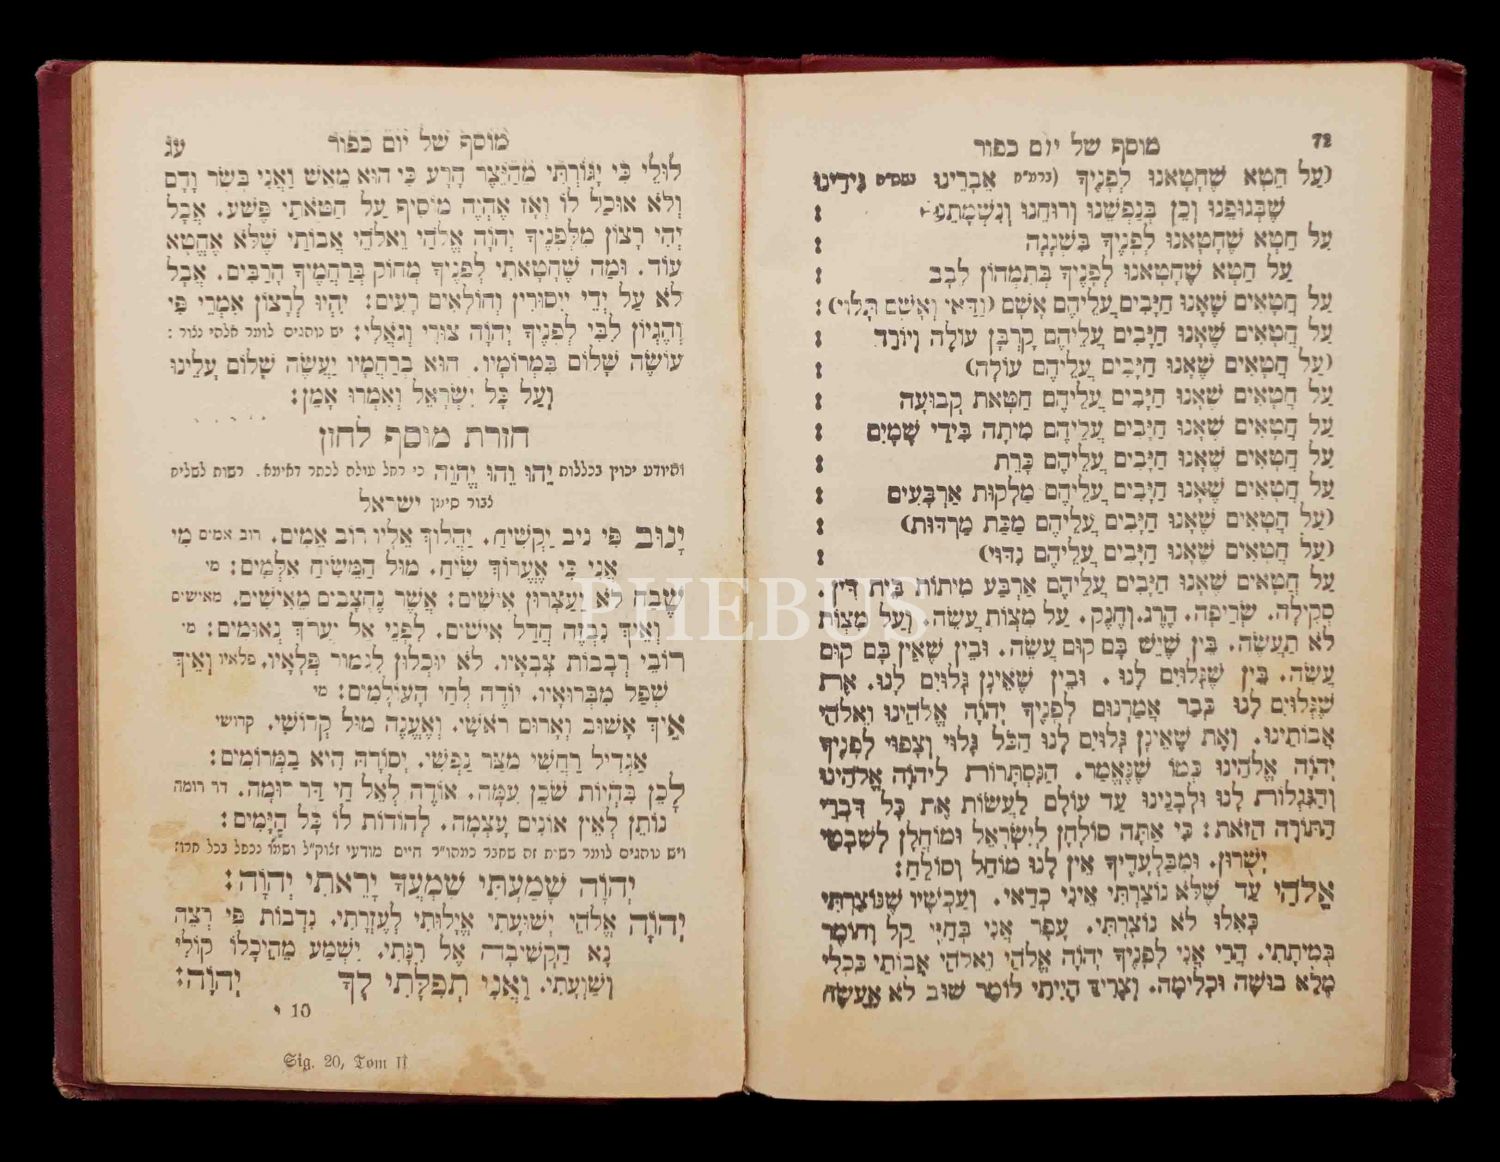 72 מוסף של יום כפור
(עַל חֵטְא שֶׁחָטָאנוּ לְפָנֶיךָ (ברמ״ח אֵבָרֵינוּ ושס״ה גִידֵינוּ
שֶׁבְּגוּפֵנוּ וְכֵן בְּנַפְשֵׁנוּ וְרוּחֵנוּ וְנִשְׁמָתֵנוּ :
עַל חֵטְא שֶׁחָטָאנוּ לְפָנֶיךָ בִּשְׁגָגָה :
עַל חֵטְא שֶׁחָטָאנוּ לְפָנֶיךָ בְּתִמְהוֹן לֵבָב :
עַל חֲטָאִים שֶׁאָנוּ חַיָּבִים עֲלֵיהֶם אָשָׁם (וַדַּאי וְאָשָׁם תָּלוּי) :
עַל חֲטָאִים שֶׁאָנוּ חַיָּבִים עֲלֵיהֶם קָרְבָּן עוֹלֶה וְיוֹרֵד :
(עַל חֲטָאִים שֶׁאָנוּ חַיָּבִים עֲלֵיהֶם עוֹלָה) :
עַל חֲטָאִים שֶׁאָנוּ חַיָּבִים עֲלֵיהֶם חַטָּאת קְבוּעָה :
עַל חֲטָאִים שֶׁאָנוּ חַיָּבִים עֲלֵיהֶם מִיתָה בִּידֵי שָׁמָיִם :
עַל חֲטָאִים שֶׁאָנוּ חַיָּבִים עֲלֵיהֶם כָּרֵת :
עַל חֲטָאִים שֶׁאָנוּ חַיָּבִים עֲלֵיהֶם מַלְקוּת אַרְבָּעִים :
(עַל חֲטָאִים שֶׁאָנוּ חַיָּבִים עֲלֵיהֶם מַכַּת מַרְדּוּת) :
(עַל חֲטָאִים שֶׁאָנוּ חַיָּבִים עֲלֵיהֶם נִדּוּי) :
עַל חֲטָאִים שֶׁאָנוּ חַיָּבִים עֲלֵיהֶם אַרְבַּע מִיתוֹת בֵּית דִּין.
סְקִילָה. שְׂרֵיפָה. הֶרֶג. וְחֶנֶק. עַל מִצְוֹת עֲשֵׂה. וְעַל מִצְוֹת
לֹא תַעֲשֶׂה. בֵּין שֶׁיֵּשׁ בָּם קוּם עֲשֵׂה. וּבֵין שֶׁאֵין בָּם קוּם
עֲשֵׂה. בֵּין שֶׁגְּלוּיִם לָנוּ. וּבֵין שֶׁאֵינָן גְּלוּיִם לָנוּ. אֶת
שֶׁגְּלוּיִם לָנוּ כְּבָר אֲמַרְנוּם לְפָנֶיךָ יְהֹוָה אֱלֹהֵינוּ וֵאלֹהֵי
אֲבוֹתֵינוּ. וְאֶת שֶׁאֵינָן גְּלוּיִם לָנוּ הַכֹּל גָּלוּי וְצָפוּי לְפָנֶיךָ
יְהֹוָה אֱלֹהֵינוּ כְּמוֹ שֶׁנֶּאֱמַר. הַנִּסְתָּרוֹת לַיהוָֹה אֱלֹהֵינוּ
וְהַנִּגְלוֹת לָנוּ וּלְבָנֵינוּ עַד עוֹלָם לַעֲשׂוֹת אֶת כָּל דִּבְרֵי
הַתּוֹרָה הַזֹּאת: כִּי אַתָּה סוֹלְחָן לְיִשְׂרָאֵל וּמוֹחֲלָן לְשִׁבְטֵי
יְשֻׁרוּן. וּמִבַּלְעָדֶיךָ אֵין לָנוּ מוֹחֵל וְסוֹלֵחַ:
אֱלֹהַי עַד שֶׁלֹּא נוֹצַרְתִּי אֵינִי כְדַאי. וְעַכְשָׁיו שֶׁנּוֹצַרְתִּי
כְּאִלּוּ לֹא נוֹצַרְתִּי. עָפָר אֲנִי בְּחַיָּי קַל וָחוֹמֶר
בְּמִיתָתִי. הֲרֵי אֲנִי לְפָנֶיךָ יְהֹוָה אֱלֹהַי וֵאלֹהֵי אֲבוֹתַי כִּכְלִי
מָלֵא בוּשָׁה וּכְלִימָה. וְצָרִיךְ הָיִיתִי לוֹמַר שׁוּב לֹא אֶעֱשֶׂה
מוסף של יום כפור עג
לוּלֵי כִּי יָגוֹרְתִּי מֵהַיֵּצֶר הָרָע כִּי הוּא מֵאֵשׁ וַאֲנִי בָּשָׂר וָדָם
וְלֹא אוּכַל לוֹ וְאָז אֶהְיֶה מוֹסִיף עַל חַטֹּאתַי פֶּשַׁע. אֲבָל
יְהִי רָצוֹן מִלְּפָנֶיךָ יְהֹוָה אֱלֹהַי וֵאלֹהֵי אֲבוֹתַי שֶׁלֹּא אֶחֱטָא
עוֹד. וּמַה שֶּׁחָטָאתִי לְפָנֶיךָ מְחוֹק בְּרַחֲמֶיךָ הָרַבִּים. אֲבָל
לֹא עַל יְדֵי יִיסוּרִין וְחוֹלָאִים רָעִים: יִהְיוּ לְרָצוֹן אִמְרֵי פִי
וְהֶגְיוֹן לִבִּי לְפָנֶיךָ יְהֹוָה צוּרִי וְגֹאֲלִי: יש נוהגים לומר אלהי נצור :
עוֹשֶׂה שָׁלוֹם בִּמְרוֹמָיו. הוּא בְרַחֲמָיו יַעֲשֶׂה שָׁלוֹם עָלֵינוּ
וְעַל כָּל יִשְׂרָאֵל וְאִמְרוּ אָמֵן:
חזרת מוסף לחזן
והיודע יכוין בכללות יַהוּ וֵהוּ יֱהֶוֶה כי רחל עולה לכתר דאימא. רשות לשליח
צבור סימן ישראל
יָנוּב פִּי נִיב יַקְשִׁיחַ. יַהֲלוֹךְ אֵלָיו רוֹב אֵמִים. רוב אמים מִי
אֲנִי כִּי אֶעֱרוֹךְ שִׂיחַ. מוּל הַמֵּשִׂיחַ אִלְּמִים: מי
שֶׁבַח לֹא יַעַצְרוּן אִישִׁים: אֲשֶׁר נֶחְצָבִים מֵאִישִׁים. מאישים
וְאֵיךְ נִבְזֶה חֲדַל אִישִׁים. לִפְנֵי אֵל יַעֲרֹךְ נְאוּמִים: מי
רוֹבֵי רְבָבוֹת צְבָאָיו. לֹא יוּכְלוּן לִגְמוֹר פְּלָאָיו. פלאיו וְאֵיךְ
שְׁפַל מִבְּרוּאָיו. יוֹדֶה לְחֵי הָעוֹלָמִים: מי
אֵיךְ אָשׁוּב וְאָרוּם רֹאשִׁי. וְאֶעֱנֶה מוּל קְדוֹשִׁי. קדושי
אַגְדִּיל רַחֲשִׁי מִצַּר נַפְשִׁי. יְסוֹדָהּ הִיא בַּמְּרוֹמִים:
לָכֵן בִּהְיוֹת שֹׁכֵן עִמָּהּ. אוֹדֶה לְאֵל חַי דַּר רוּמָה. דר רומה
נוֹתֵן לְאֵין אוֹנִים עָצְמָה. לְהוֹדוֹת לוֹ כָּל הַיָּמִים:
ויש נוהגים לומר רשות זה שחבר כמהו״ר חיים מודעי זלוק״ל ושמו נכפל בכל חרוז
יְהֹוָה שָׁמַעְתִּי שִׁמְעֲךָ יָרֵאתִי יְהֹוָה:
יְהֹוָה אֱלֹהֵי יְשׁוּעָתִי אֱיָלוּתִי לְעֶזְרָתִי. נִדְבוֹת פִּי רְצֵה
נָא הַקְשִׁיבָה אֶל רִנָּתִי. יִשְׁמַע מֵהֵיכָלוֹ קוֹלִי
וְשַׁוְעָתִי. וַאֲנִי תְפִלָּתִי לְךָ יְהֹוָה:
10 י
Sig. 20, Tom II
PHEBUS